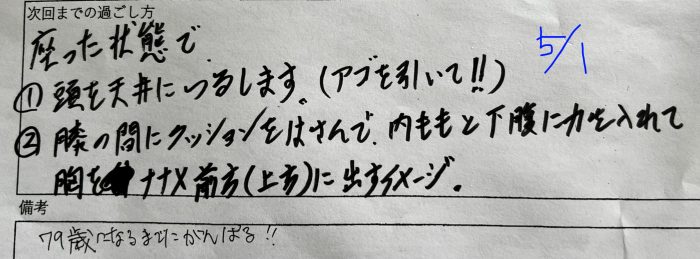 次回までの過ごし方
座った状態で
5/1
① 頭を天井につるします。(アゴを引いて!!)
② 膝の間にクッションをはさんで、内ももと下腹に力を入れて
胸をナナメ前方(上方)に出すイメージ。
備考
79歳になるまでにがんばる!!